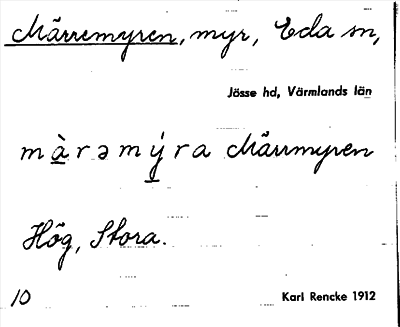 Märremyren, myr, Eda sn,
Jösse hd, Värmlands län
m à r ə m ý r a Märrmyren
Hög, Stora.
10
Karl Rencke 1912